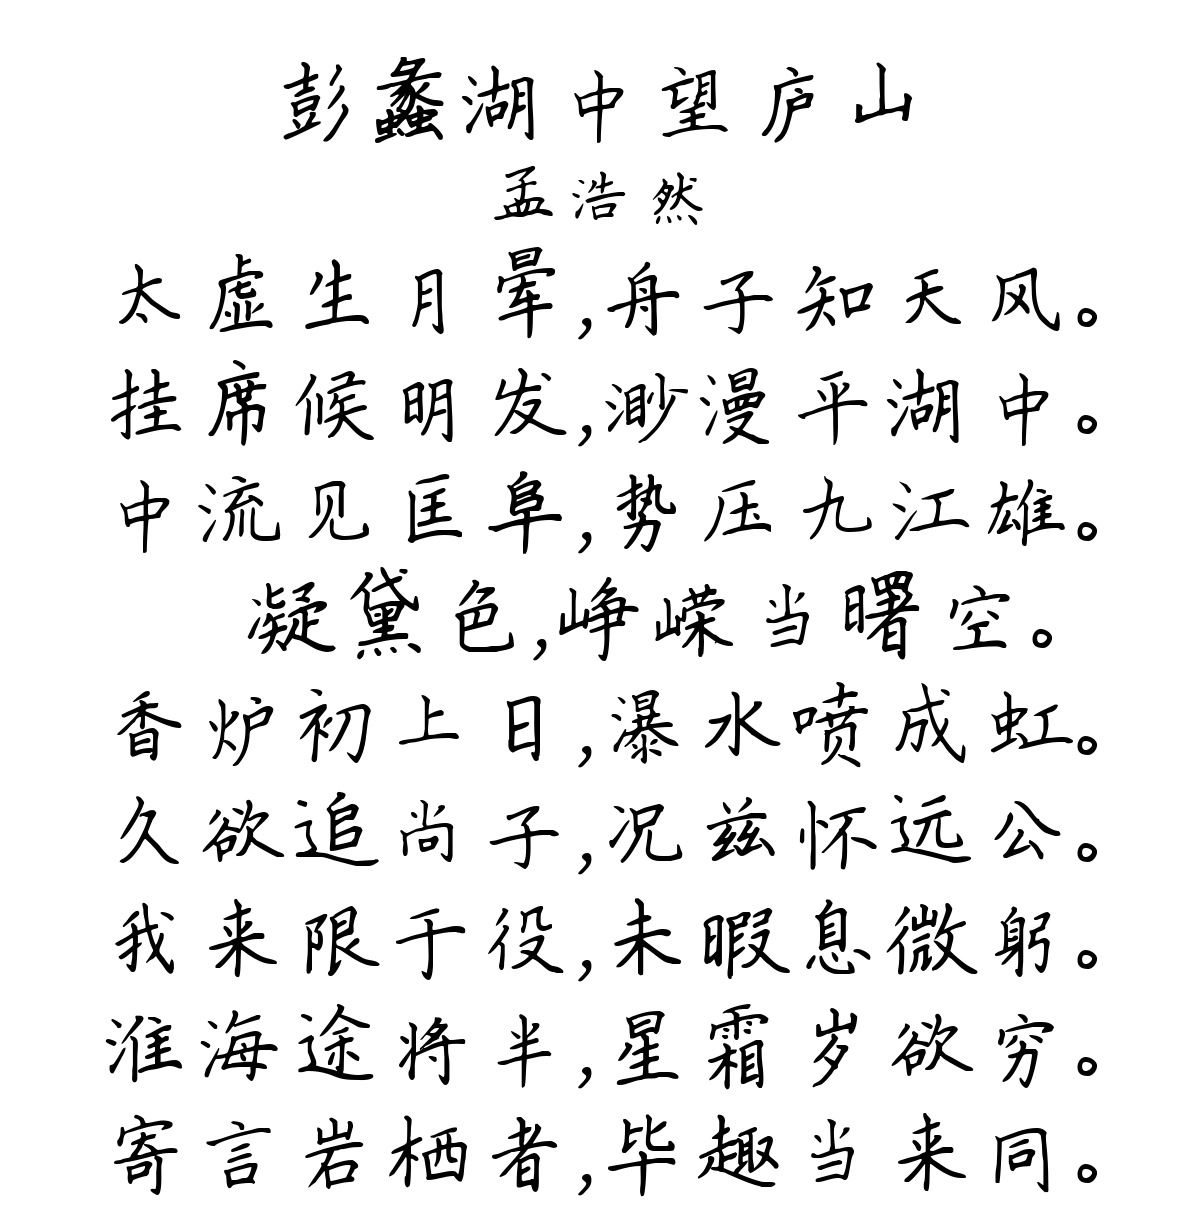 彭蠡湖中望庐山
孟浩然
太虚生月晕,舟子知天风。
挂席候明发,渺漫平湖中。
中流见匡阜,势压九江雄。
凝黛色,峥嵘当曙空。
香炉初上日,瀑水喷成虹。
久欲追尚子,况兹怀远公。
我来限于役,未暇息微躬。
淮海途将半,星霜岁欲穷。
寄言岩栖者,毕趣当来同。